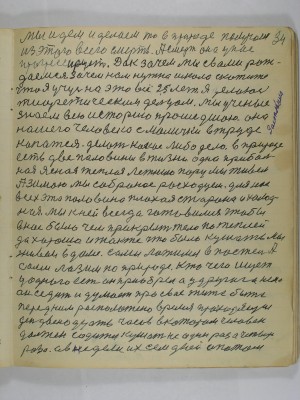 мы идем и делаем то в природе получаем 34
из этого всего смерть. А смерть она у нас
прогрессирует. Дык зачем мы с вами рож-
даемся зачем нам нужно
что я учусь на это всё 25 лет. Я делаюсь
теоретическим делузом. Мы ученые
знаем всю историю прошедшего она
нашего человека с малышки в труде
копается. делат какие либо дела. в природе
есть две половины в жизни одна прибыль-
ная ясная теплая летнюю пору мы живем
А зимою мы собраное росходуем. для нас
всех эта половина плохая старона и холод-
ная. мы к ней всегда готовимся чтобы
у нас было чем прикрыт тело потеплей
да хорошо и также что было кушать. мы
живем в доме. сами ложимся в постел. А
сами лазим по природе. кто чего ищет
у одного есть он приобрел а у другого нема
он сидит и думает про свое жите бытё
перед ним росположено время проходящие
денъ двенадцать часов в котором человек
должен садится кушать не один раз а четыри
раза. а в неделе их сем дней а потом